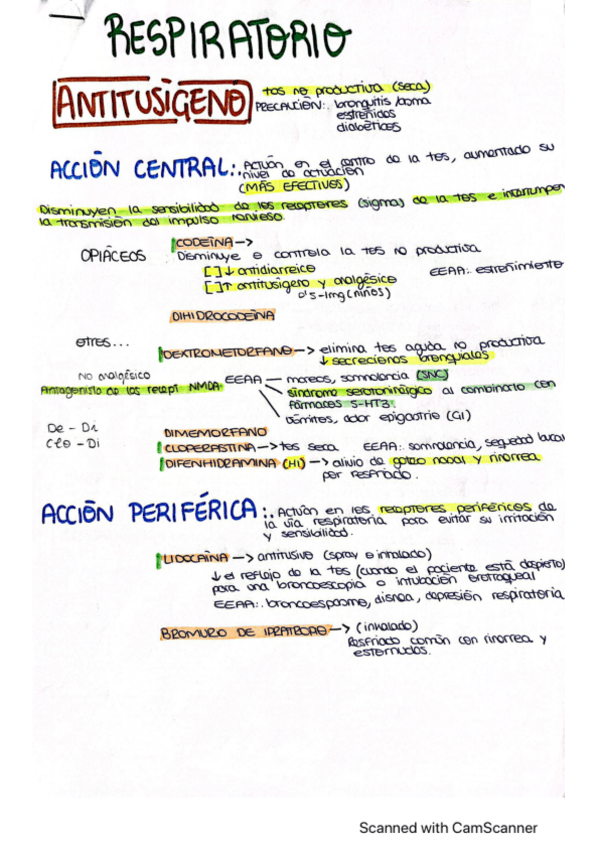 RESPIRATORIO
ANTITUSIGENO
tos no productiva (seca)
PRECAUCIÓN:. bronquitis/asma
estreñidos
diabéticos
ACCIÓN CENTRAL:. Actúan en el centro de la tos, aumentado su
nivel de actuación
(MÁS EFECTIVOS)
Disminuyen la sensibilidad de los receptores (sigma) de la tos e interrumpen
la transmisión del impulso nervioso.
OPIÁCEOS
CODEÍNA →
Disminuye o controla la tos no productiva
[ ]↓ antidiarreico
EEAA:. estreñimiento
[ ]↑ antitusígero y analgésico
0'5-1mg (niños)
DIHIDROCODEÍNA
otros...
DEXTROMETORFANO → elimina tos aguda no productiva
↓ secreciones bronquiales
NO analgésico
Antagonista de los recept NMDA
EEAA — mareos, somnolencia (SNC)
síndrome serotoninúrgico al combinarlo con
fármacos 5-HT3.
Vómitos, dolor epigastrio (GI)
De - Di
Clo - Di
DIMEMORFANO
CLOPERASTINA → tos seca EEAA:. somnolencia, sequedad bucal
DIFENHIDRAMINA (H1) → alivio de goteo nasal y rinorrea
por resfriado.
ACCIÓN PERIFÉRICA:. Actúan en los receptores periféricos de
la vía respiratoria para evitar su irritación
y sensibilidad.
LIDOCAÍNA → antitusivo (spray o inhalado)
↓ el reflejo de la tos (cuando el paciente está despierto)
para una broncoscopia o intubación
EEAA:. broncoespasmo, disnea, depresión respiratoria
BROMURO DE IPRATROPIO → (inhalado)
Resfriado común con rinorrea y
estornudos.
Scanned with CamScanner